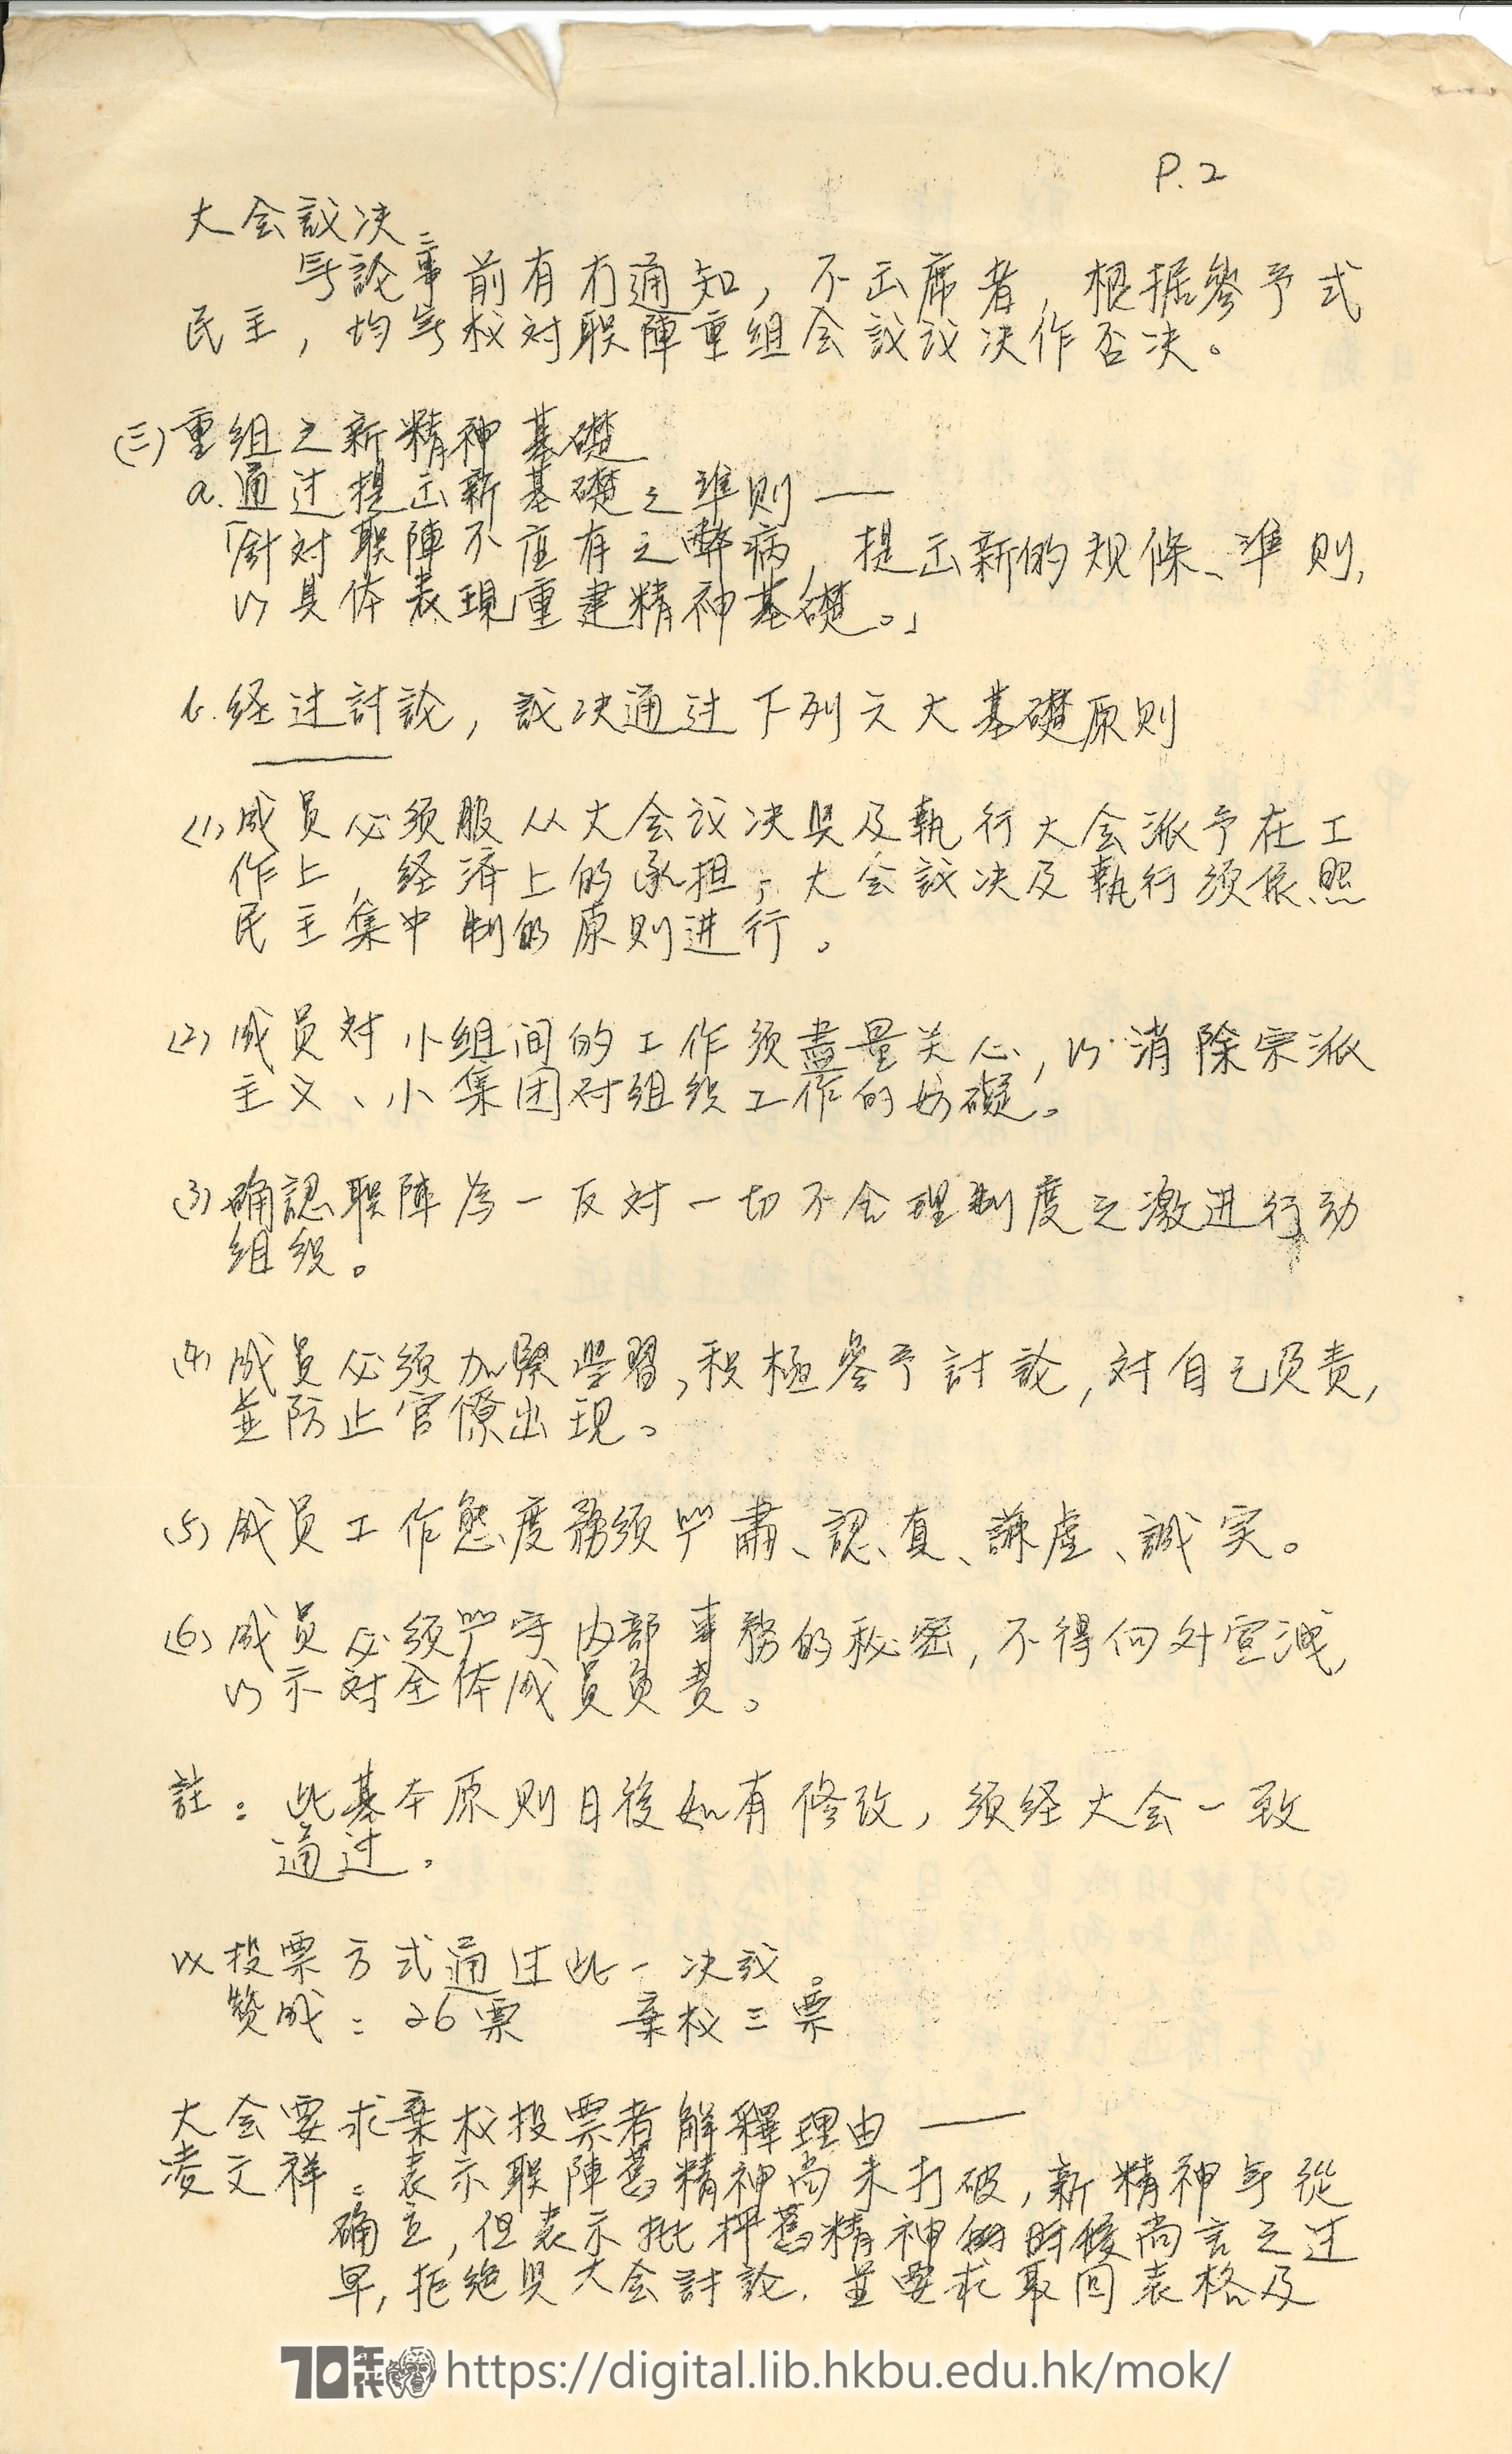 P.2
大会議决。
無論事前有冇通知，不出席者，根据參予式
民主，均無权対联陣重组会議议决作否决。
(三)重组之新精神基礎
a.通过提出新基礎之準則——
「針対联陣不应有之弊病，提出新的规條、準則，
以具体表現重建精神基礎。」
b.経过討論，議决通过下列六大基礎原则
(1)成员必须服从大会议决與及執行大会派予在工
作上，経済上的承担；大会議决及執行须依照
民主集中制的原则进行。
(2)成员対小组间的工作须盡量关心，以消除宗派
主义、小集团対组织工作的妨礙。
(3)确認联陣為一反対一切不合理制度之激进行动
组织。
(4)成員必须加緊學習，积極參予討論，対自己负责，
並防止官僚出现。
(5)成员工作態度務须严肅、認真、謙虚、誠实。
(6)成員必须严守内部事務的秘密，不得向外宣洩，
以示対全体成員负責。
註：此基本原则日後如有修改，须経大会一致
通过。
以投票方式通过此一决议。
贊成：26票　棄权三票
大会要求棄权投票者解釋理由——
凌文祥：表示联陣舊精神尚未打破，新精神無從
确立，但表示批抨舊精神的時候尚言之过
早，拒绝與大会討論．並要求取回表格及
70年代 https://digital.lib.hkbu.edu.hk/mok/